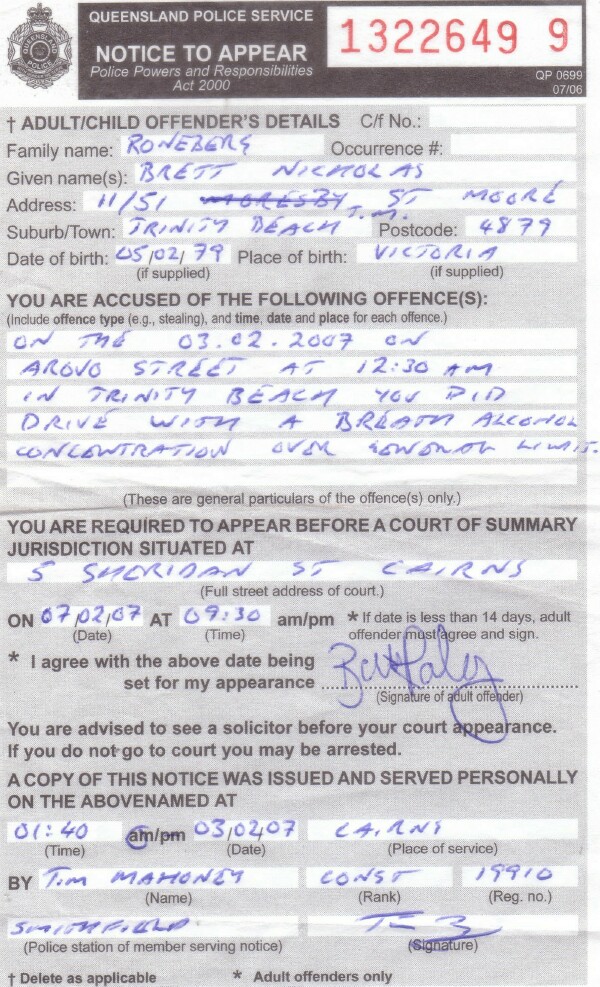 QUEENSLAND POLICE SERVICE
NOTICE TO APPEAR
Police Powers and Responsibilities
Act 2000
1322649 9
QP 0699
07/06
QUEENSLAND
POLICE
† ADULT/CHILD OFFENDER'S DETAILS C/f No.:
Family name: RONEBERG Occurrence #:
Given name(s): BRETT NICHOLAS
Address: 11/51 MORESBY ST MOORE
T.M.
Suburb/Town: TRINITY BEACH Postcode: 4879
Date of birth: 05/02/79 Place of birth: VICTORIA
(if supplied) (if supplied)
YOU ARE ACCUSED OF THE FOLLOWING OFFENCE(S):
(Include offence type (e.g., stealing), and time, date and place for each offence.)
ON THE 03.02.2007 ON
STREET AT 12:30 AM
IN TRINITY BEACH YOU DID
DRIVE WITH A BREATH ALCOHOL
CONCENTRATION OVER LIMIT.
(These are general particulars of the offence(s) only.)
YOU ARE REQUIRED TO APPEAR BEFORE A COURT OF SUMMARY
JURISDICTION SITUATED AT
5 SHERIDAN ST CAIRNS
(Full street address of court.)
ON 07/02/07 AT 09:30 am/pm * If date is less than 14 days, adult
(Date) (Time) offender must agree and sign.
* I agree with the above date being
set for my appearance
(Signature of adult offender)
You are advised to see a solicitor before your court appearance.
If you do not go to court you may be arrested.
A COPY OF THIS NOTICE WAS ISSUED AND SERVED PERSONALLY
ON THE ABOVENAMED AT
01:40 am/pm 03/02/07 CAIRNS
(Time) (Date) (Place of service)
BY TIM MAHONEY CONST 19910
(Name) (Rank) (Reg. no.)
SMITHFIELD
(Police station of member serving notice) (Signature)
† Delete as applicable * Adult offenders only